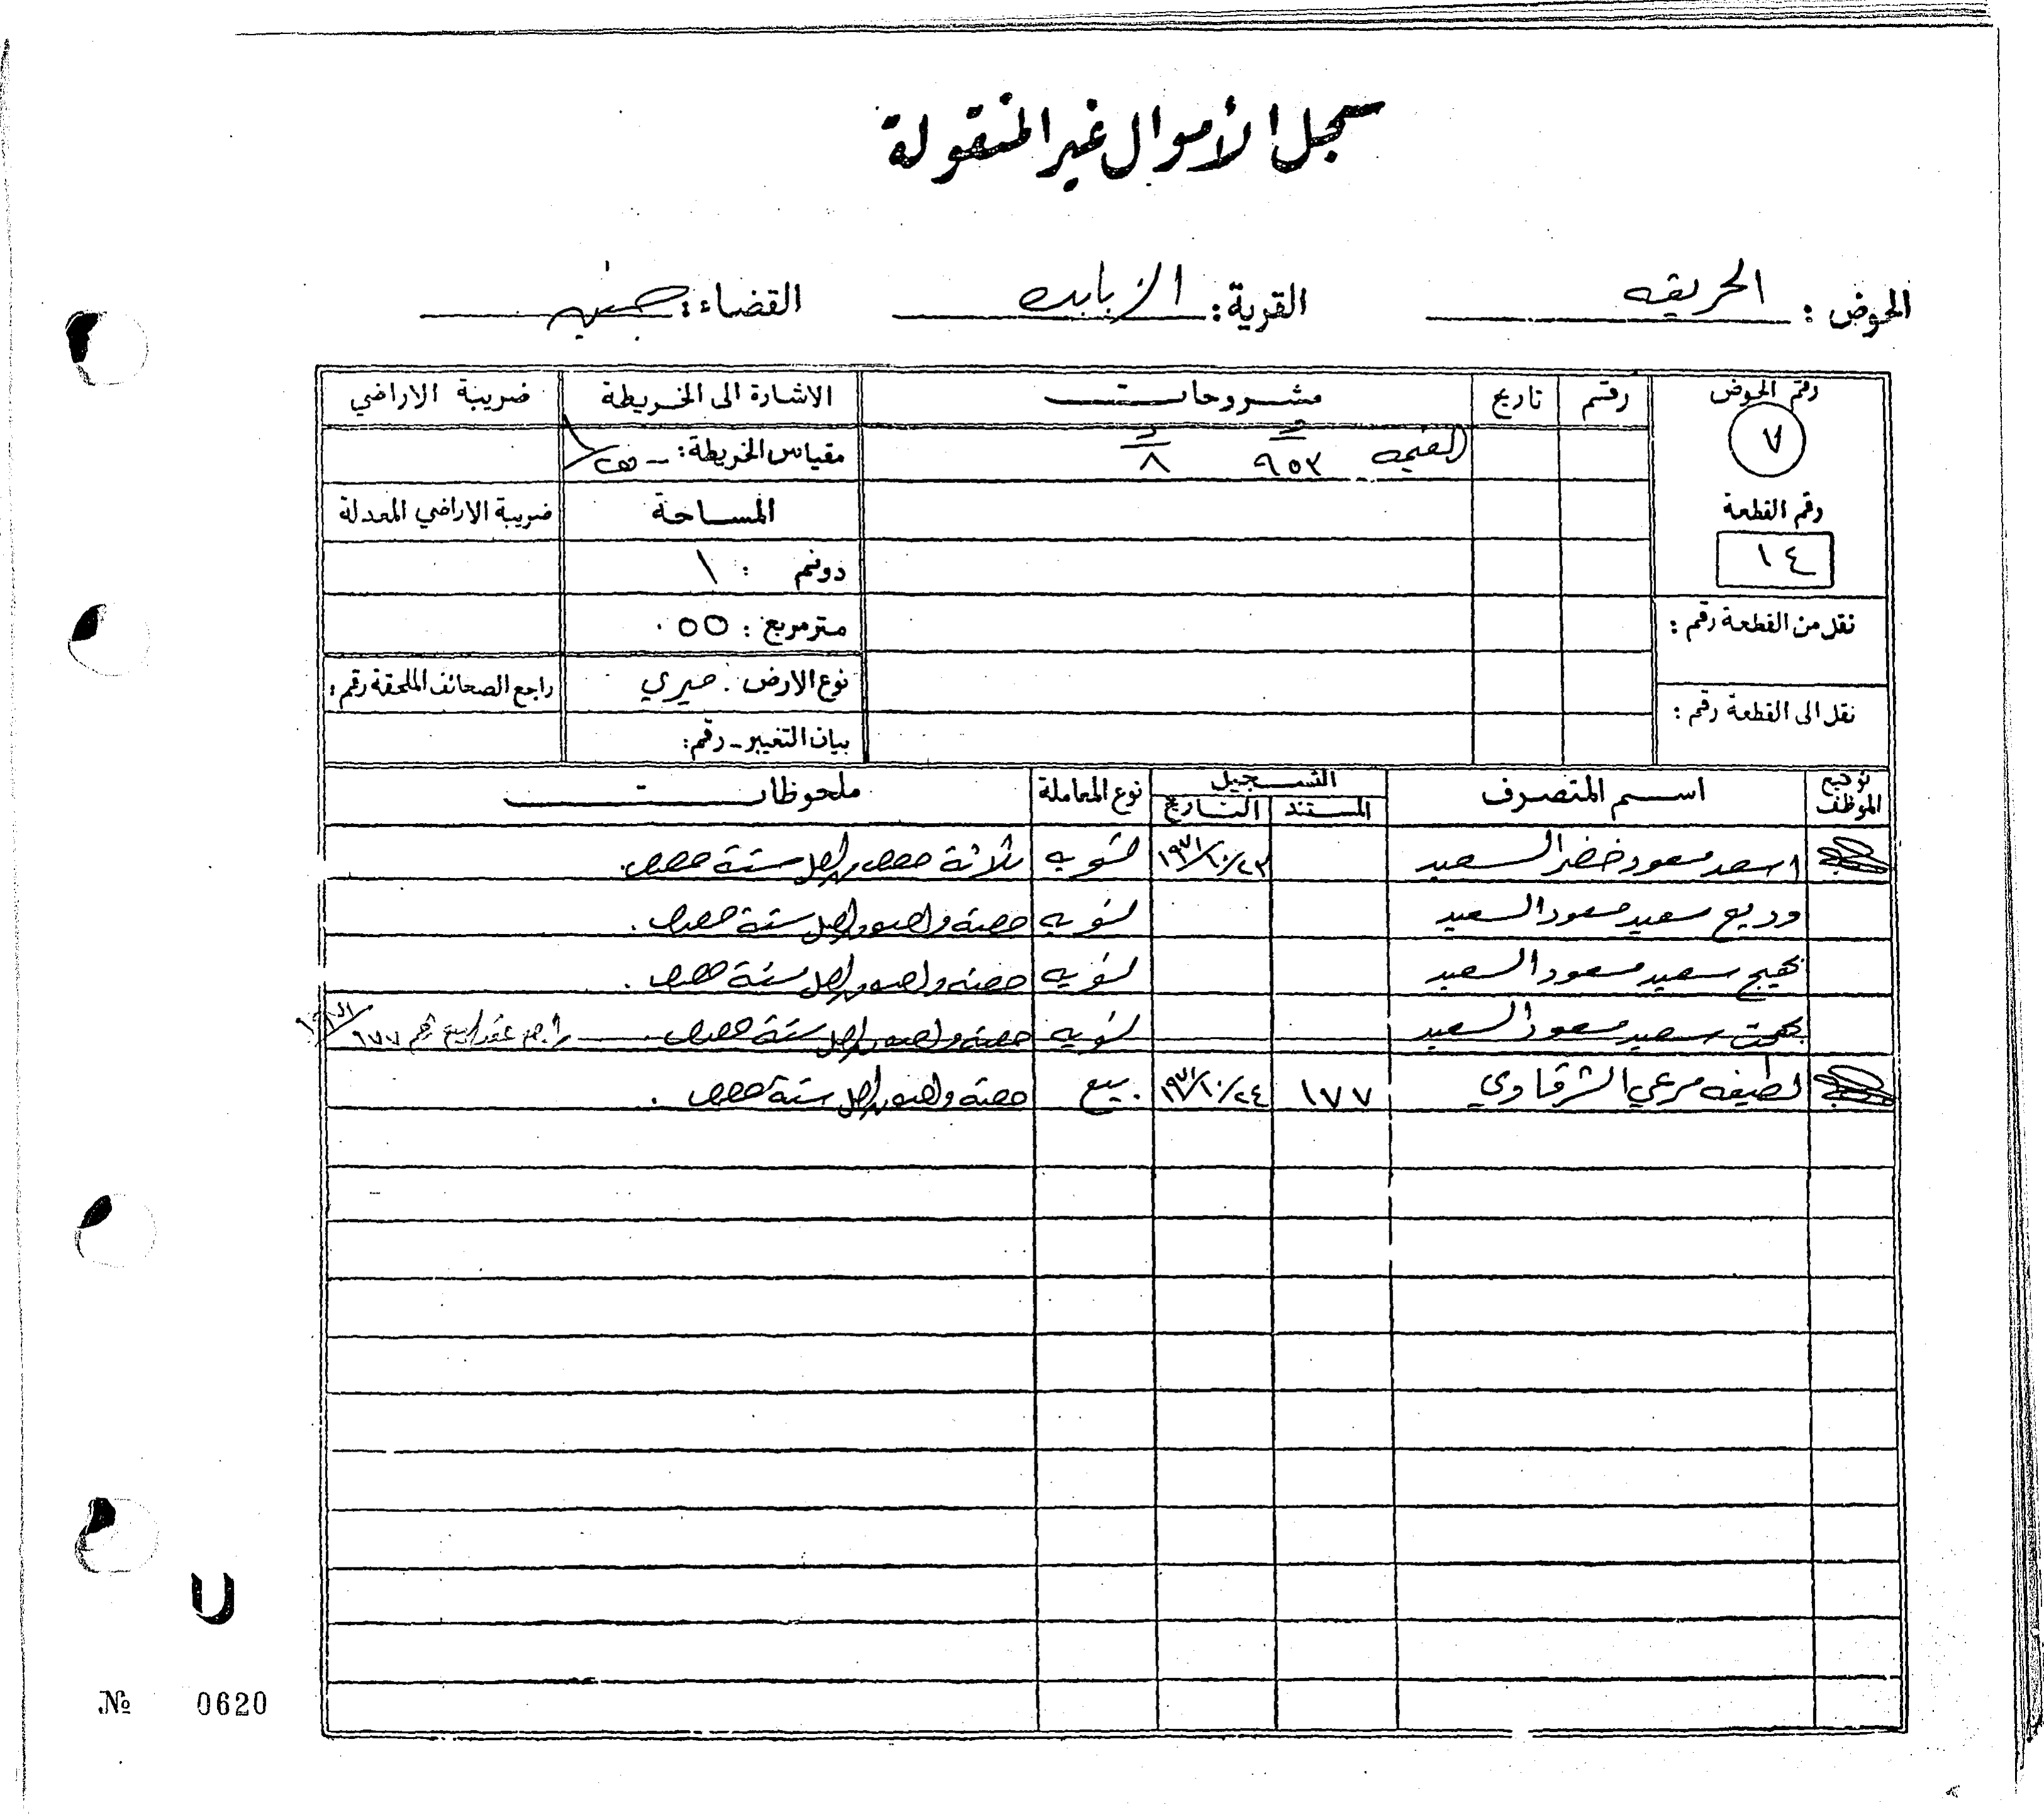 سجل الأموال غير المنقولة
الحوض : الحريقه القرية : الزبابده القضاء : جنين
رقم الحوض رقم تاريخ مشروحات الاشارة الى الخريطة ضريبة الاراضي
٧ القيمه ٩٥٣ ٨ مقياس الخريطة :
رقم القطعة المساحة ضريبة الاراضي المعدلة
١٤ دونم : ١
نقل من القطعة رقم : متر مربع : ٠٥٥
نوع الارض . ميري راجع الصحائف الملحقة رقم :
نقل الى القطعة رقم : بيان التغيير - رقم :
توقيع الموظف اسم المتصرف التسجيل نوع المعاملة ملحوظات
المستند التاريخ
اسعد مسعود خضر السعيد ١٩٧١/١٠/٢٣ تسويه ثلاثة حصص من اصل ستة حصص .
وديع سعيد مسعود السعيد تسويه حصة واحده من اصل ستة حصص .
بهيج سعيد مسعود السعيد تسويه حصة واحده من اصل ستة حصص .
بهجت سعيد مسعود السعيد تسويه حصة واحده من اصل ستة حصص . راجع عقد البيع رقم ١٧٧
لطيفه مرعي الشرقاوي ١٧٧ ١٩٧١/١٠/٢٤ بيع حصة واحده من اصل ستة حصص .
U
№ 0620